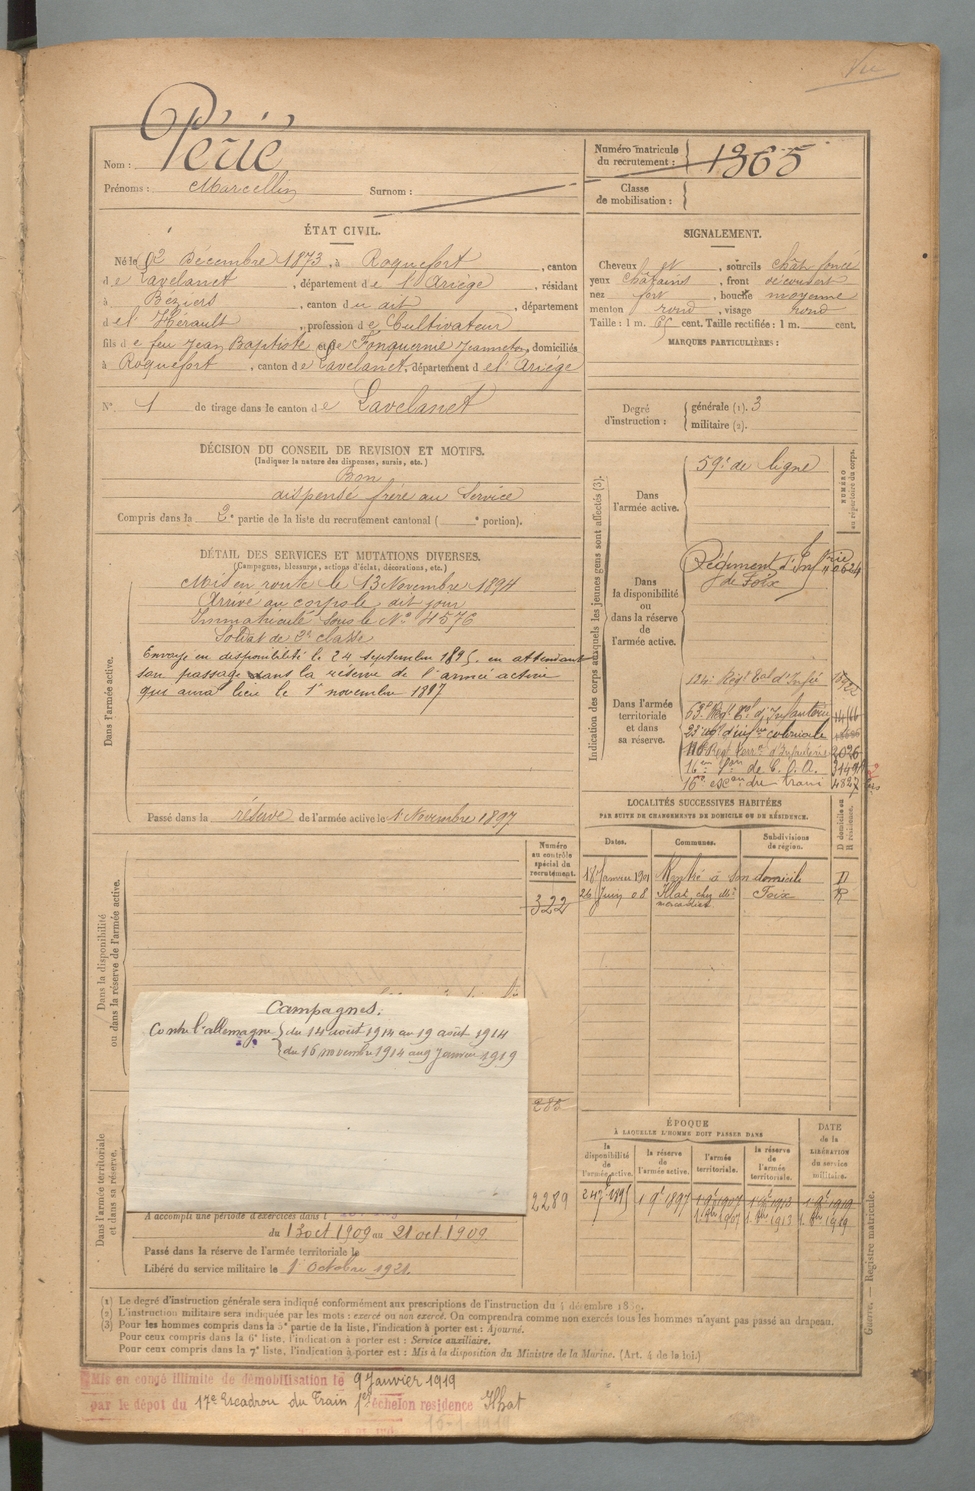 Vu
Nom : Périé
Prénoms : Marcellin Surnom :
Numéro matricule du recrutement : 1365
Classe de mobilisation :
ÉTAT CIVIL.
Né le 2 Décembre 1873, à Roquefort, canton
de Lavelanet, département de l'Ariège, résidant
à Béziers, canton du dit, département
de l'Hérault, profession de Cultivateur
fils de feu Jean Baptiste et de Fonquernie Jeanneton, domiciliés
à Roquefort, canton de Lavelanet, département de l'Ariège
N° 1 de tirage dans le canton de Lavelanet
SIGNALEMENT.
Cheveux et, sourcils chât foncé
yeux châtains, front découvert
nez fort, bouche moyenne
menton rond, visage rond
Taille : 1 m. 65 cent. Taille rectifiée : 1 m. cent.
MARQUES PARTICULIÈRES :
Degré d'instruction : générale (1). 3
militaire (2).
DÉCISION DU CONSEIL DE REVISION ET MOTIFS.
(Indiquer la nature des dispenses, sursis, etc.)
Bon
dispensé frère au Service
Compris dans la 2e partie de la liste du recrutement cantonal ( e portion).
DÉTAIL DES SERVICES ET MUTATIONS DIVERSES.
(Campagnes, blessures, actions d'éclat, décorations, etc.)
Dans l'armée active.
Mis en route le 13 Novembre 1894
Arrivé au corps le dit jour
Immatriculé sous le N° 4576
Soldat de 2e classe
Envoyé en disponibilité le 24 septembre 1895. en attendant
son passage dans la réserve de l'armée active
qui aura lieu le 1er novembre 1897
Passé dans la réserve de l'armée active le 1 Novembre 1897
Indication des corps auxquels les jeunes gens sont affectés (3).
NUMÉRO au répertoire du corps.
Dans l'armée active.
59e de ligne
Dans la disponibilité ou dans la réserve de l'armée active.
Régiment d'Infrie
de Foix
Dans l'armée territoriale et dans sa réserve.
124e Régt Tal d'Infie
53e Régt Tal d'Infanterie
23e régt d'infrie coloniale
116e Régt Terral d'Infanterie 2026
16em Son de C.O.A.
16e escon du train 4827
Dans la disponibilité ou dans la réserve de l'armée active.
Numéro au contrôle spécial du recrutement.
322
LOCALITÉS SUCCESSIVES HABITÉES
PAR SUITE DE CHANGEMENTS DE DOMICILE OU DE RÉSIDENCE.
Dates. Communes. Subdivisions de région. D domicile ou R résidence.
18 Janvier 1901 Rentré à son domicile D
24 Juin 08 Foix R
Campagnes.
Contre l'allemagne du 14 août 1914 au 19 août 1914
du 16 novembre 1914 au 9 Janvier 1919
285
Dans l'armée territoriale et dans sa réserve.
2289
A accompli une période d'exercices dans l
du 13 oct 1909 au 21 oct 1909
Passé dans la réserve de l'armée territoriale le
Libéré du service militaire le 1er Octobre 1921.
ÉPOQUE
À LAQUELLE L'HOMME DOIT PASSER DANS
la disponibilité de l'armée active. la réserve de l'armée active. l'armée territoriale. la réserve de l'armée territoriale. DATE de la LIBÉRATION du service militaire.
24 7bre 1895 1 9e 1897 1 9e 1907 1 9e 1913 1 9e 1919
1. 8bre 1907 1. 8bre 1913 1. 8bre 1919
(1) Le degré d'instruction générale sera indiqué conformément aux prescriptions de l'instruction du 4 décembre 1889.
(2) L'instruction militaire sera indiquée par les mots : exercé ou non exercé. On comprendra comme non exercés tous les hommes n'ayant pas passé au drapeau.
(3) Pour les hommes compris dans la 5e partie de la liste, l'indication à porter est : Ajourné.
Pour ceux compris dans la 6e liste, l'indication à porter est : Service auxiliaire.
Pour ceux compris dans la 7e liste, l'indication à porter est : Mis à la disposition du Ministre de la Marine. (Art. 4 de la loi.)
Guerre. — Registre matricule.
Mis en congé illimité de démobilisation le 9 Janvier 1919
par le dépôt du 17e Escadron du Train 1er échelon residence